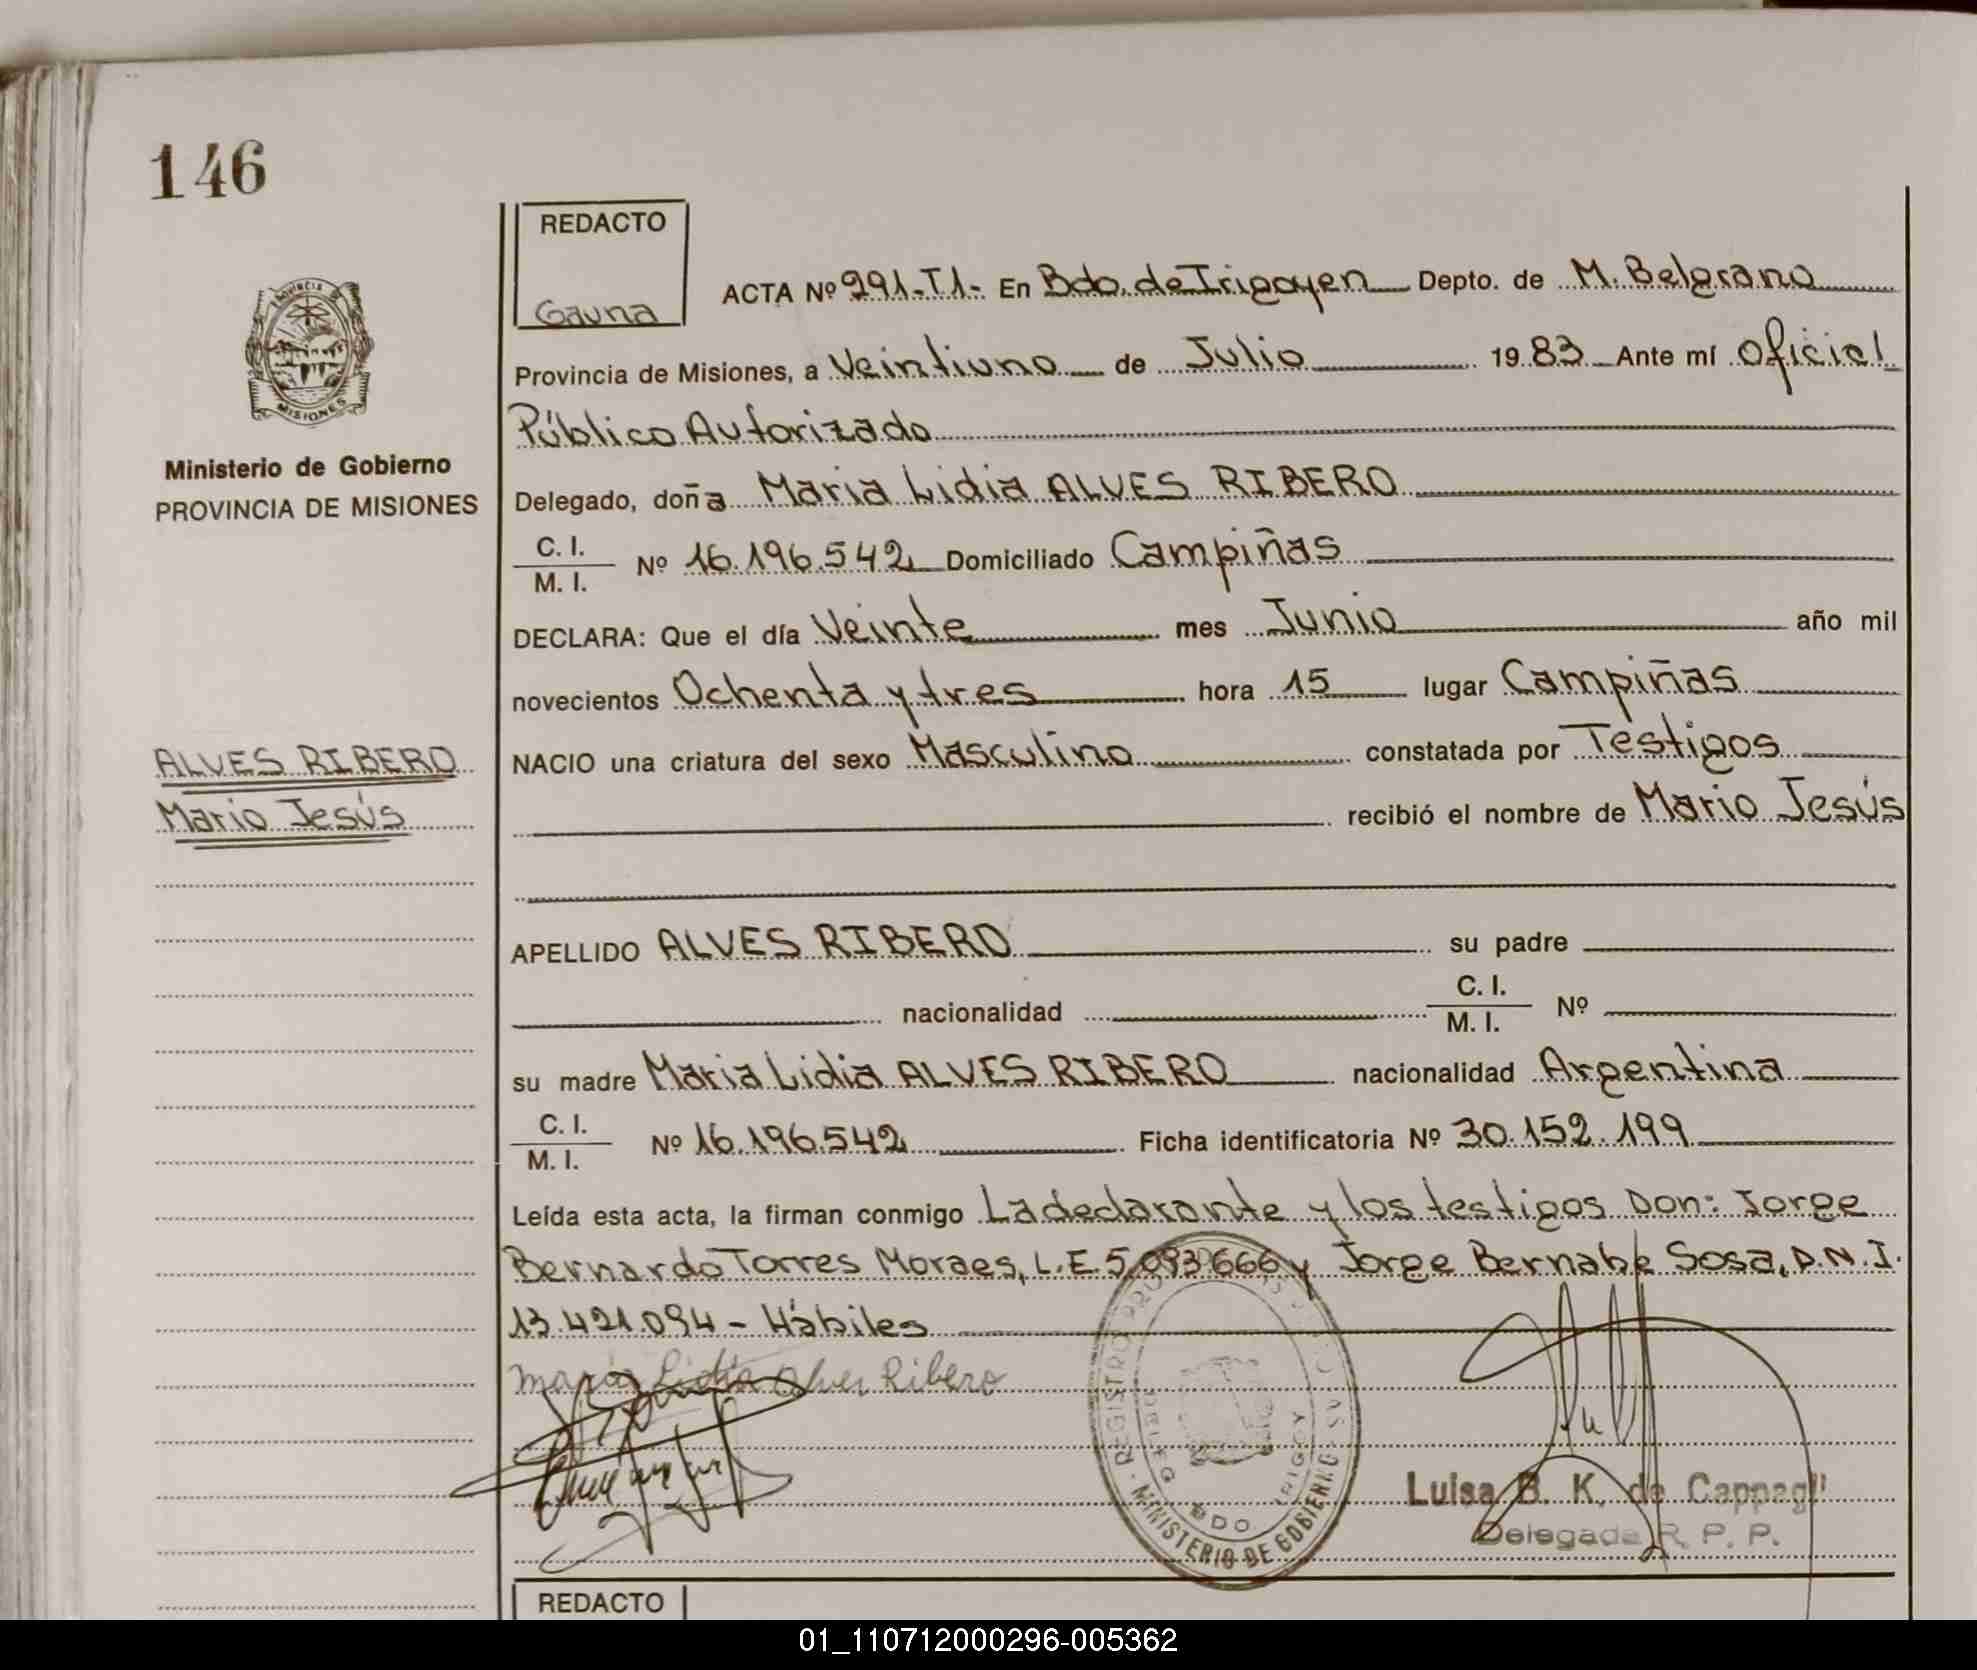 146
REDACTO
Gauna
ACTA Nº 291-T1- En Bdo. de Irigoyen Depto. de M. Belgrano
Provincia de Misiones, a Veintiuno de Julio 1983 Ante mí Oficial
Público Autorizado
Delegado, doña Maria Lidia ALVES RIBERO
C. I.
M. I. Nº 16.196.542 Domiciliado Campiñas
DECLARA: Que el día Veinte mes Junio año mil
novecientos Ochenta y tres hora 15 lugar Campiñas
NACIO una criatura del sexo Masculino constatada por Testigos
recibió el nombre de Mario Jesús
APELLIDO ALVES RIBERO su padre
nacionalidad C. I. M. I. Nº
su madre Maria Lidia ALVES RIBERO nacionalidad Argentina
C. I.
M. I. Nº 16.196.542 Ficha identificatoria Nº 30.152.199
Leída esta acta, la firman conmigo La declarante y los testigos Don: Jorge
Bernardo Torres Moraes, L.E. 5.093.666 y Jorge Bernabe Sosa, D.N.I.
13.421.094 - Hábiles
María Lidia Alves Ribero
PROVINCIA
MISIONES
Ministerio de Gobierno
PROVINCIA DE MISIONES
ALVES RIBERO
Mario Jesús
MINISTERIO DE GOBIERNO
BDO. IRIGOY
Luisa B. K. de Cappagli
Delegada R. P. P.
REDACTO
01_110712000296-005362